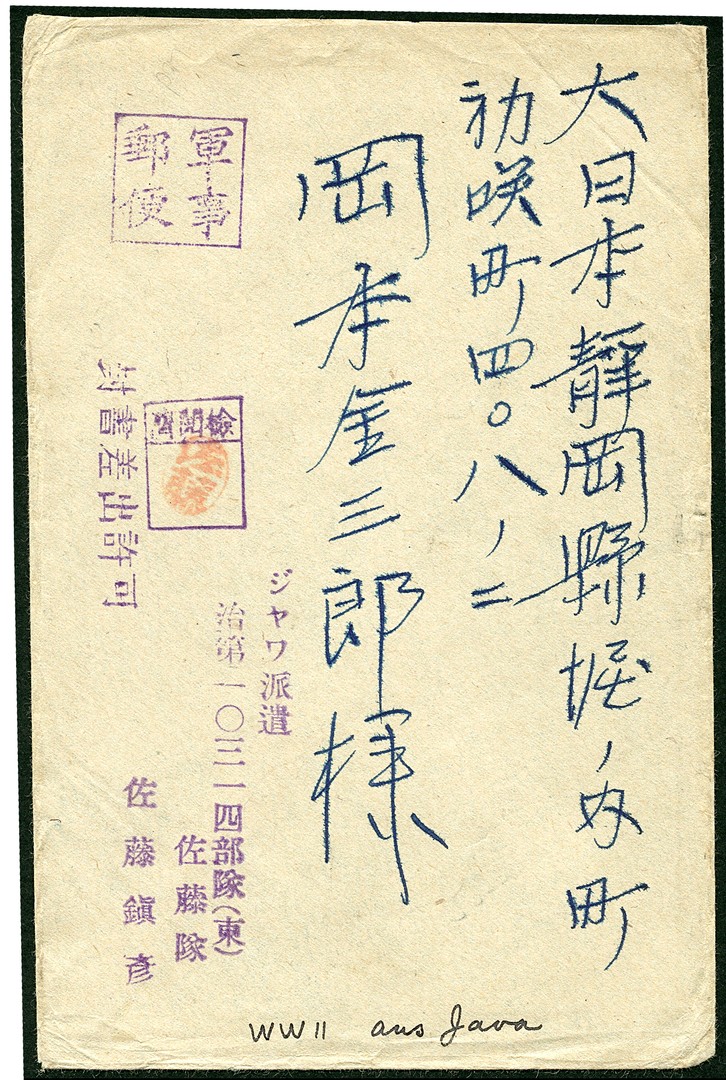 大日本靜岡縣堀ノ内町
初咲町四〇八ノ二
岡本金三郎様
軍事
郵便
ジャワ派遣
治第一〇三一四部隊(東)
佐藤隊
佐藤鎭彦
封書差出許可
WWII aus Java